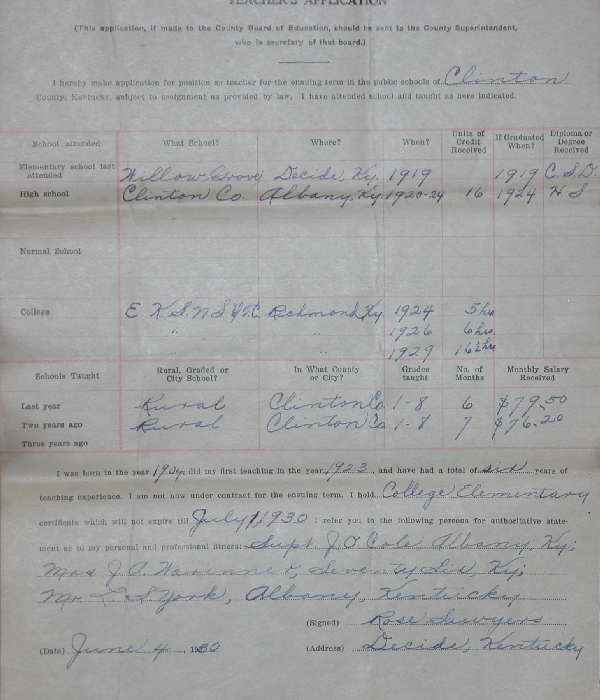 TEACHER'S APPLICATION
(This application, if made to the County Board of Education, should be sent to the County Superintendent,
who is secretary of that board.)
I hereby make application for position as teacher for the ensuing term in the public schools of Clinton
County, Kentucky, subject to assignment as provided by law. I have attended school and taught as here indicated.
School attended What School? Where? When? Units of Credit Received If Graduated When? Diploma or Degree Received
Elementary school last attended Willow Grove Decide, Ky. 1919 1919 C.S.D.
High school Clinton Co Albany, Ky. 1920-24 16 1924 H S
Normal School
College E K S. N S & T.C. Richmond, Ky. 1924 5 hrs
" " 1926 6 hrs.
" " 1929 16½ hrs
Schools Taught Rural, Graded or City School? In What County or City? Grades taught No. of Months Monthly Salary Received
Last year Rural Clinton Co 1-8 6 $79.50
Two years ago Rural Clinton Co 1-8 7 $76.20
Three years ago
I was born in the year 1904, did my first teaching in the year 1923, and have had a total of six years of
teaching experience. I am not now under contract for the ensuing term. I hold College Elementary
certificate which will not expire till July 1, 1930 I refer you to the following persons for authoritative state-
ment as to my personal and professional fitness: Supt J. O Cole, Albany, Ky;
Mrs J. A. Warinner, Seventy Six, Ky;
Mr. L. S. York, Albany, Kentucky
(Signed) Rose Sawyers
(Date) June 4, 1930 (Address) Decide, Kentucky